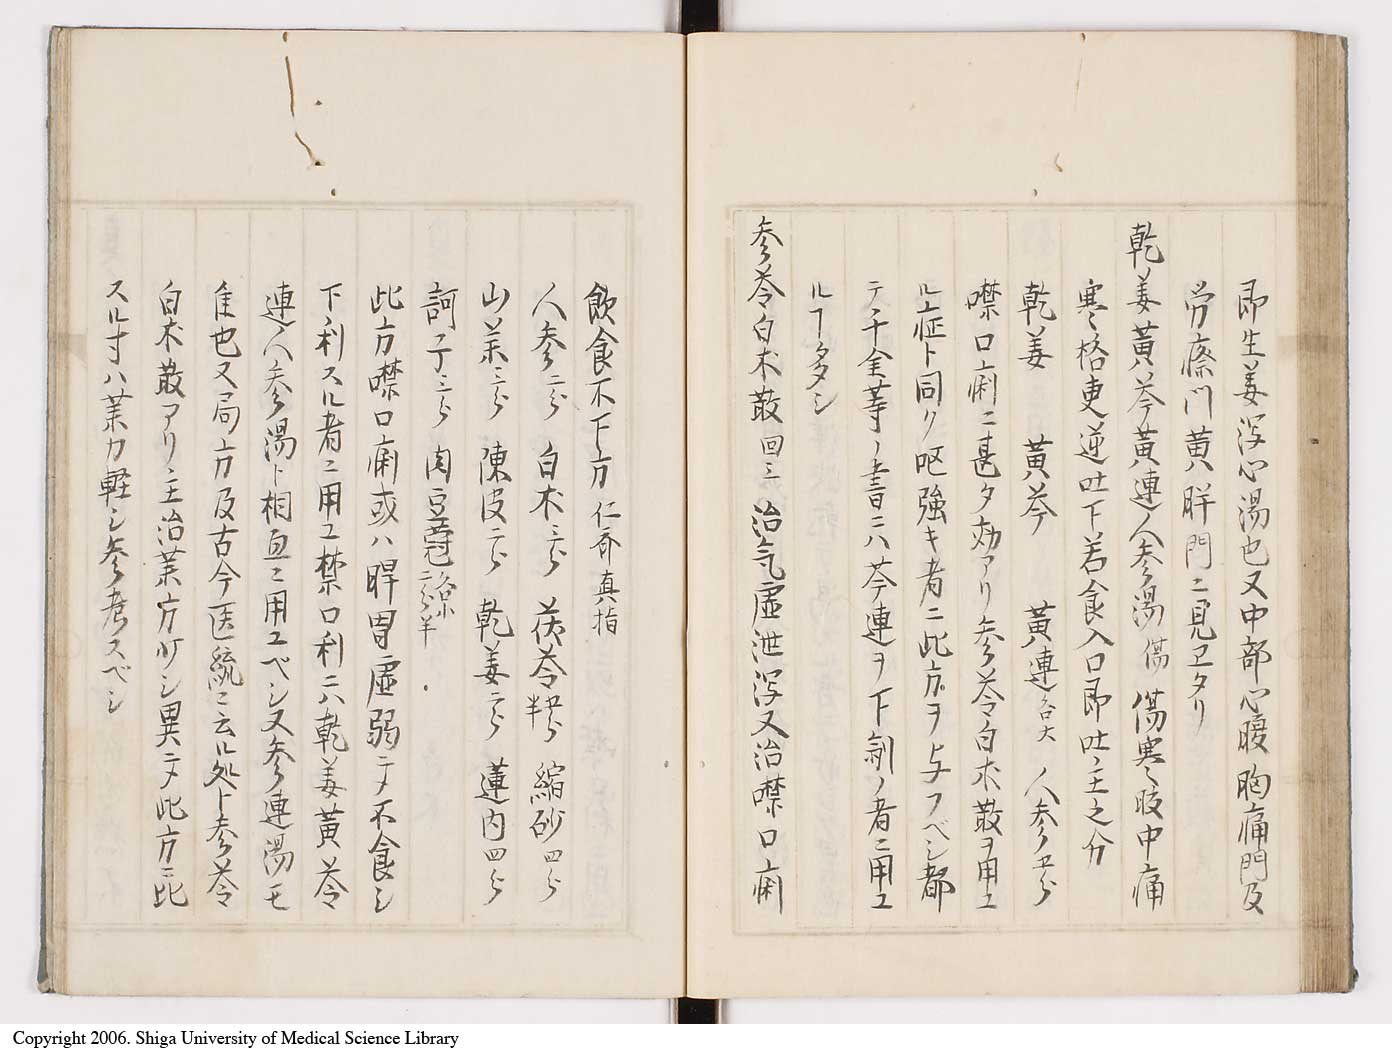 即生姜瀉心湯也又中部心腹胸痛門及
労瘵門黄胖門ニ見ヱタリ
乾姜黄芩黄連人参湯 傷 傷寒腹中痛
寒格更逆吐下若食入口即吐主之分
乾姜 黄芩 黄連各大 人参
噤口痢ニ甚タ効アリ参苓白朮散ヲ用ユ
ル症ト同ク呕強キ者ニ此方ヲ与フベシ都
テ千金等ノ書ニハ芩連ヲ下剤ノ者ニ用ユ
ルヿ多シ
参苓白朮散 回三 治気虚泄瀉又治噤口痢
飲食不下方 仁斎真指
人参二分 白朮三分 茯苓 縮砂四分
山薬三分 陳皮二分 乾姜二分 蓮肉四分
訶子三分 肉豆蔲
此方噤口痢或ハ脾胃虚弱ニメ不食シ
下利スル者ニ用ユ禁口利ニハ乾姜黄芩
連人参湯ト相互ニ用ユベシ又参連湯モ
隹也又局方及古今医統ニ云ル処ト参苓
白朮散アリ主治薬方少シ異ニメ此方ニ比
スル寸ハ薬力軽シ参考スベシ
Copyright 2006. Shiga University of Medical Science Library